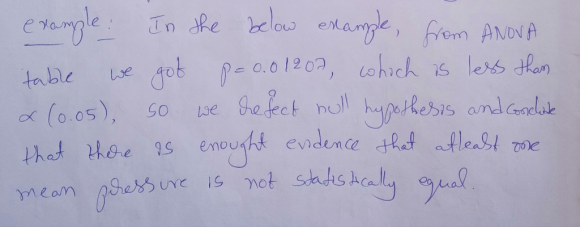 example: In the below example, from ANOVA
table we got p=0.01207, which is less than
α (0.05), so we reject null hypothesis and conclude
that there is enought evidence that atleast one
mean pressure is not statistically equal.